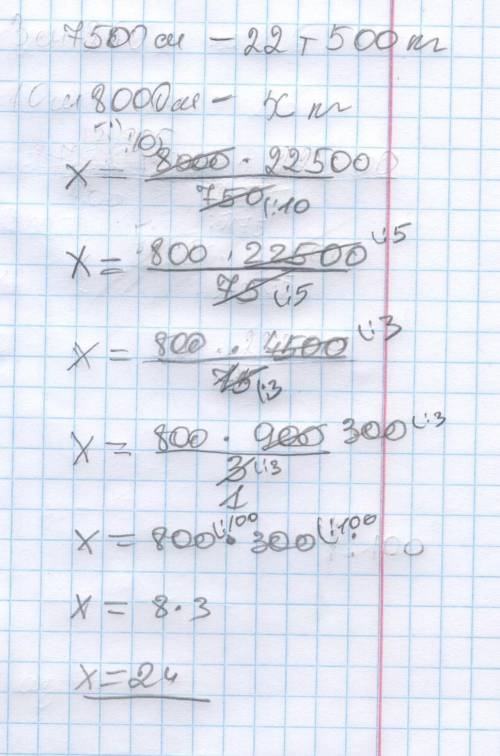 7500 см - 22 т 500 кг
8000 см - x кг
x = 8000 · 22500 :10
750 :10
x = 800 · 22500 :5
75 :5
x = 800 · 4500 :3
15 :3
x = 800 · 900 300 :3
3 :3
1
x = 800 :100 · 300 :100
x = 8 · 3
x = 24